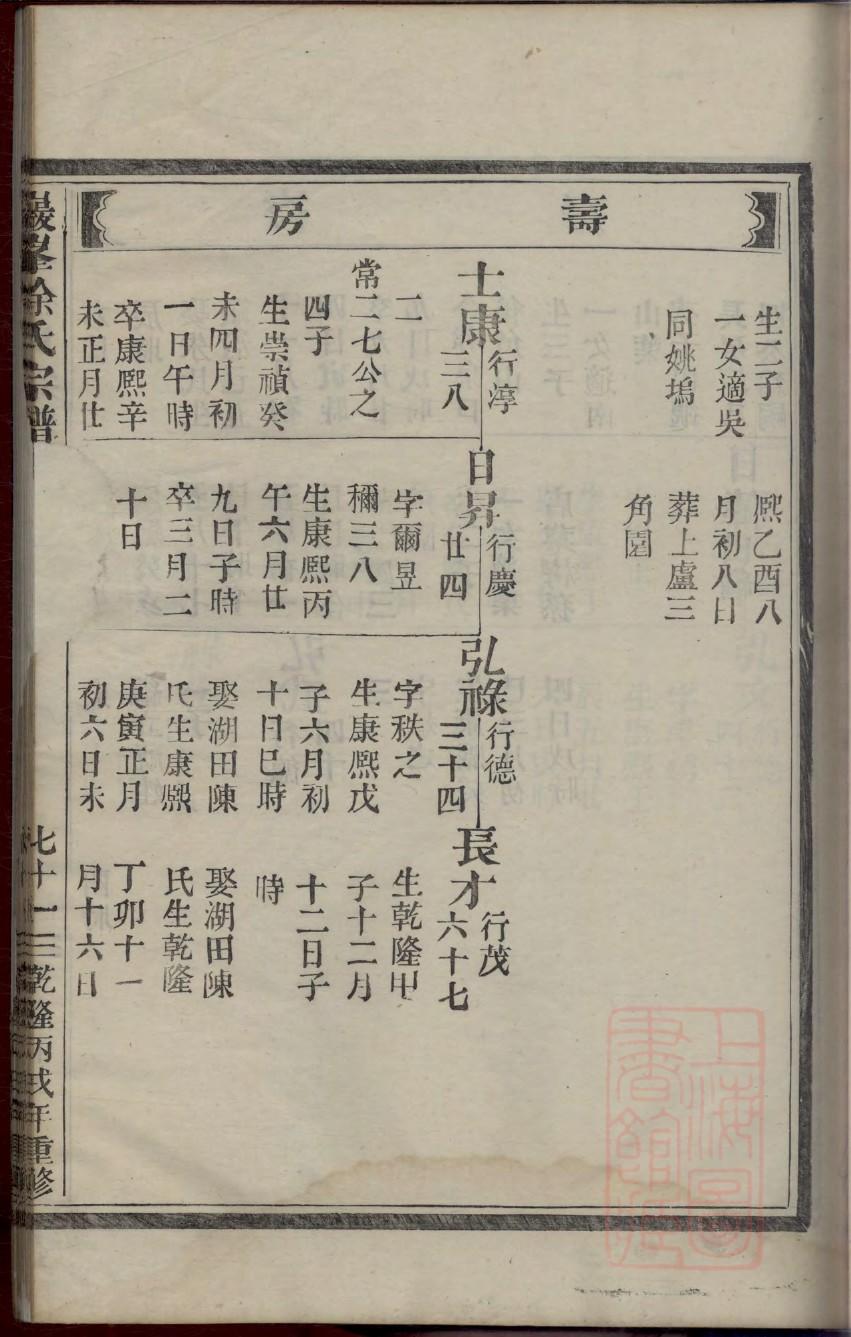 壽房
生二子
一女適吳
同姚塢
熈乙酉八
月初八日
葬上盧三
角園
士康
行淳
三八
二
常二七公之
四子
生崇禎癸
未四月初
一日午時
卒康熈辛
未正月廿
日昇
行慶
廿四
字爾昱
禰三八
生康熈丙
午六月廿
九日子時
卒三月二
十日
弘祿
行德
三十四
字秩之
生康熈戊
子六月初
十日巳時
娶湖田陳
氏生康熈
庚寅正月
初六日未
長才
行茂
六十七
生乾隆甲
子十二月
十二日子
時
娶湖田陳
氏生乾隆
丁卯十一
月十六日
嚴峯徐氏宗譜
七十一
乾隆丙戌年重修
上海圖書館藏